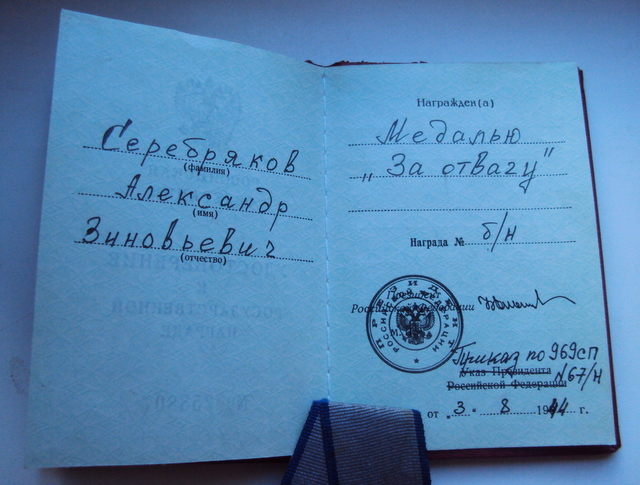 Серебряков
(фамилия)
Александр
(имя)
Зиновьевич
(отчество)
Награжден(а)
Медалью
„За отвагу"
Награда № б/н
Президент
Российской Федерации
ПРЕЗИДЕНТ
РОССИЙСКОЙ ФЕДЕРАЦИИ
М.
Приказ по 969сп
Указ Президента №67/н
Российской Федерации
от „3" 8 1944 г.